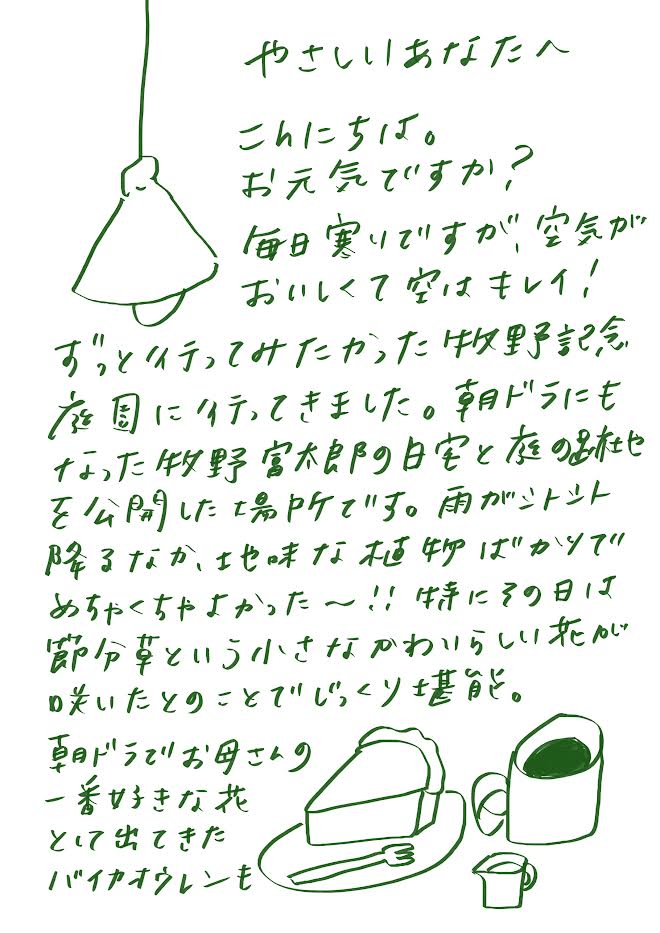 やさしいあなたへ
こんにちは。
お元気ですか?
毎日寒いですが、空気が
おいしくて空はキレイ!
ずっと行ってみたかった牧野記念
庭園に行ってきました。朝ドラにも
なった牧野富太郎の自宅と庭の跡地
を公開した場所です。雨がシトシト
降るなか、地味な植物ばかりで
めちゃくちゃよかった〜!!特にその日は
節分草という小さなかわいらしい花が
咲いたとのことでじっくり堪能。
朝ドラでお母さんの
一番好きな花
として出てきた
バイカオウレンも